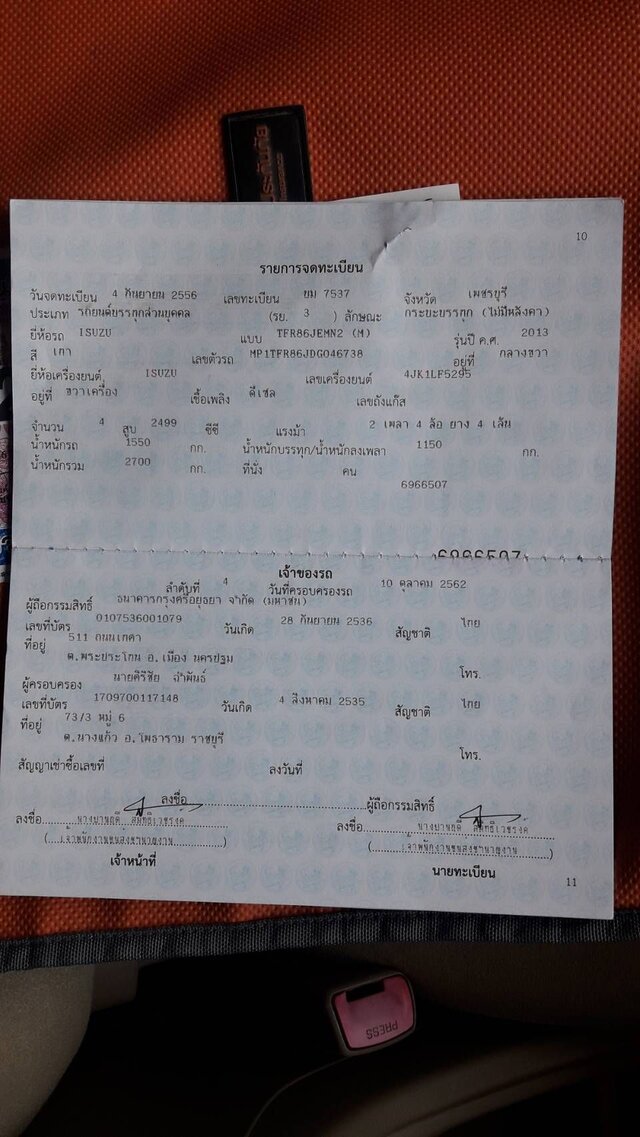 ประกันภัย
10
รายการจดทะเบียน
วันจดทะเบียน 4 กันยายน 2556 เลขทะเบียน ยม 7537 จังหวัด เพชรบุรี
ประเภท รถยนต์บรรทุกส่วนบุคคล (รย. 3 ) ลักษณะ กระบะบรรทุก (ไม่มีหลังคา)
ยี่ห้อรถ ISUZU แบบ TFR86JEMN2 (M) รุ่นปี ค.ศ. 2013
สี เทา เลขตัวรถ MP1TFR86JDG046738 อยู่ที่ กลางขวา
ยี่ห้อเครื่องยนต์ ISUZU เลขเครื่องยนต์ 4JK1LF5295
อยู่ที่ ขวาเครื่อง เชื้อเพลิง ดีเซล เลขถังแก๊ส
จำนวน 4 สูบ 2499 ซีซี แรงม้า 2 เพลา 4 ล้อ ยาง 4 เส้น
น้ำหนักรถ 1550 กก. น้ำหนักบรรทุก/น้ำหนักลงเพลา 1150 กก.
น้ำหนักรวม 2700 กก. ที่นั่ง คน
6966507
6966507
เจ้าของรถ
ลำดับที่ 4 วันที่ครอบครองรถ 10 ตุลาคม 2562
ผู้ถือกรรมสิทธิ์ ธนาคารกรุงศรีอยุธยา จำกัด (มหาชน)
เลขที่บัตร 0107536001079 วันเกิด 28 กันยายน 2536 สัญชาติ ไทย
ที่อยู่ 511 ถนนเทศา
ต.พระประโทน อ.เมือง นครปฐม โทร.
ผู้ครอบครอง นายศิริชัย จำพันธ์
เลขที่บัตร 1709700117148 วันเกิด 4 สิงหาคม 2535 สัญชาติ ไทย
ที่อยู่ 73/3 หมู่ 6
ต.นางแก้ว อ.โพธาราม ราชบุรี โทร.
สัญญาเช่าซื้อเลขที่ ลงวันที่
ลงชื่อ ผู้ถือกรรมสิทธิ์
ลงชื่อ ลงชื่อ
(เจ้าพนักงานขนส่งชำนาญงาน) (เจ้าพนักงานขนส่งชำนาญงาน)
เจ้าหน้าที่ นายทะเบียน
11
PRESS